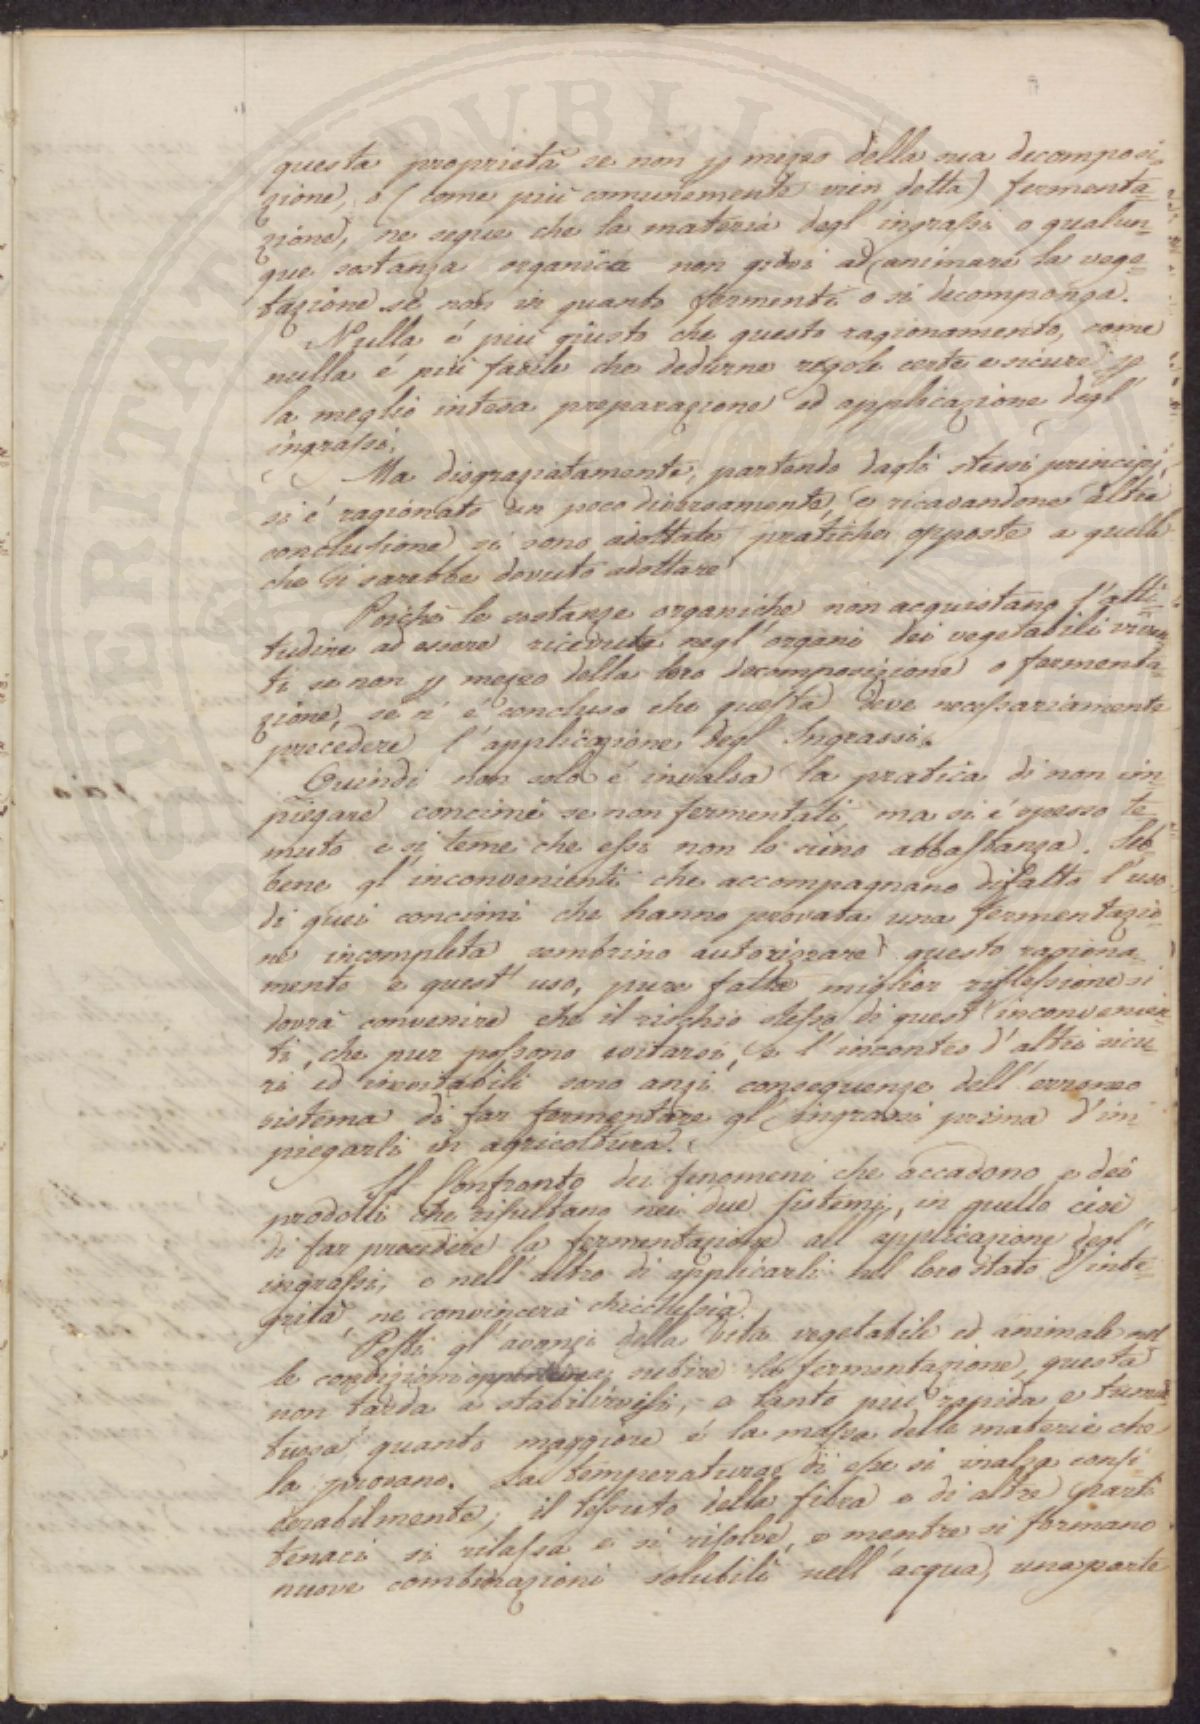 questa proprietà se non p mezzo della sua decomposi-
zione, o (come più comunemente vien detta) fermenta-
zione, ne segue che la materia degl'ingrassi o qualun-
que sostanza organica non giovi ad animare la vege-
tazione se non in quanto fermenti o si decomponga.
Nulla è più giusto che questo ragionamento, come
nulla è più facile che dedurne regole certe e sicure p
la meglio intesa preparazione ed applicazione degl'
ingrassi.
Ma disgraziatamente, partendo dagli stessi principj,
si è ragionato un poco diversamente, e ricavandone altre
conclusione si sono adottate pratiche opposte a quelle
che si sarebbe dovuto adottare
Poiché le sostanze organiche non acquistano l'atti-
tudine ad essere ricevute negl'organi dei vegetabili viven-
ti se non p mezzo della loro decomposizione o fermenta-
zione, se n'è concluso che questa deve necessariamente
precedere l'applicazione degl'Ingrassi.
Quindi non solo è invalsa la pratica di non im-
piegare concimi se non fermentati, ma si è spesso te-
muto e si teme che essi non lo siino abbastanza. Seb-
bene gl'inconvenienti che accompagnano difatto l'uso
di quei concimi che hanno provata una fermentazio-
ne incompleta sembrino autorizzare questo ragiona-
mento e quest'uso, pure fatta miglior riflessione si
dovrà convenire che il rischio stesso di quest'inconvenien-
ti, che pur possono evitarsi, e l'incontro d'altri sicu-
ri ed inevitabili sono anzi conseguenze dell'erroneo
sistema di far fermentare gl'ingrassi prima d'im-
piegarli in agricoltura.
Il Confronto dei fenomeni che accadono e dei
prodotti che risultano nei due sistemi, in quello cioè
di far precedere la fermentazione all'applicazione degl'
ingrassi, e nell'altro di applicarli nel loro stato d'inte-
grità, ne convincerà chicchesia.
Posti gl'avanzi della vita vegetabile ed animale nel-
le condizioni opportune a subire la fermentazione, questa
non tarda a stabilirvisi, e tanto più rapida e tumul-
tuosa quanto maggiore è la massa delle materie che
la provano. La temperatura di esse si inalza consi-
derabilmente; il tessuto della fibra e di altre parti
tenaci si rilassa e si risolve, e mentre si formano
nuove combinazioni solubili nell'acqua, una parte